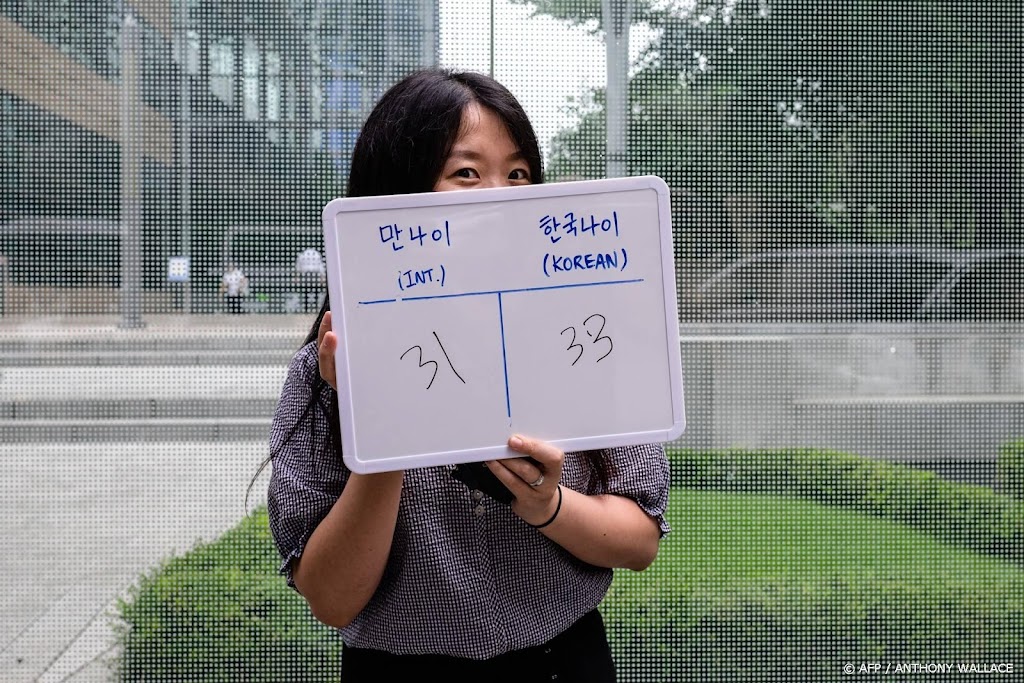 만나이 한국나이
(INT.) (KOREAN)
31 33
© AFP / ANTHONY WALLACE